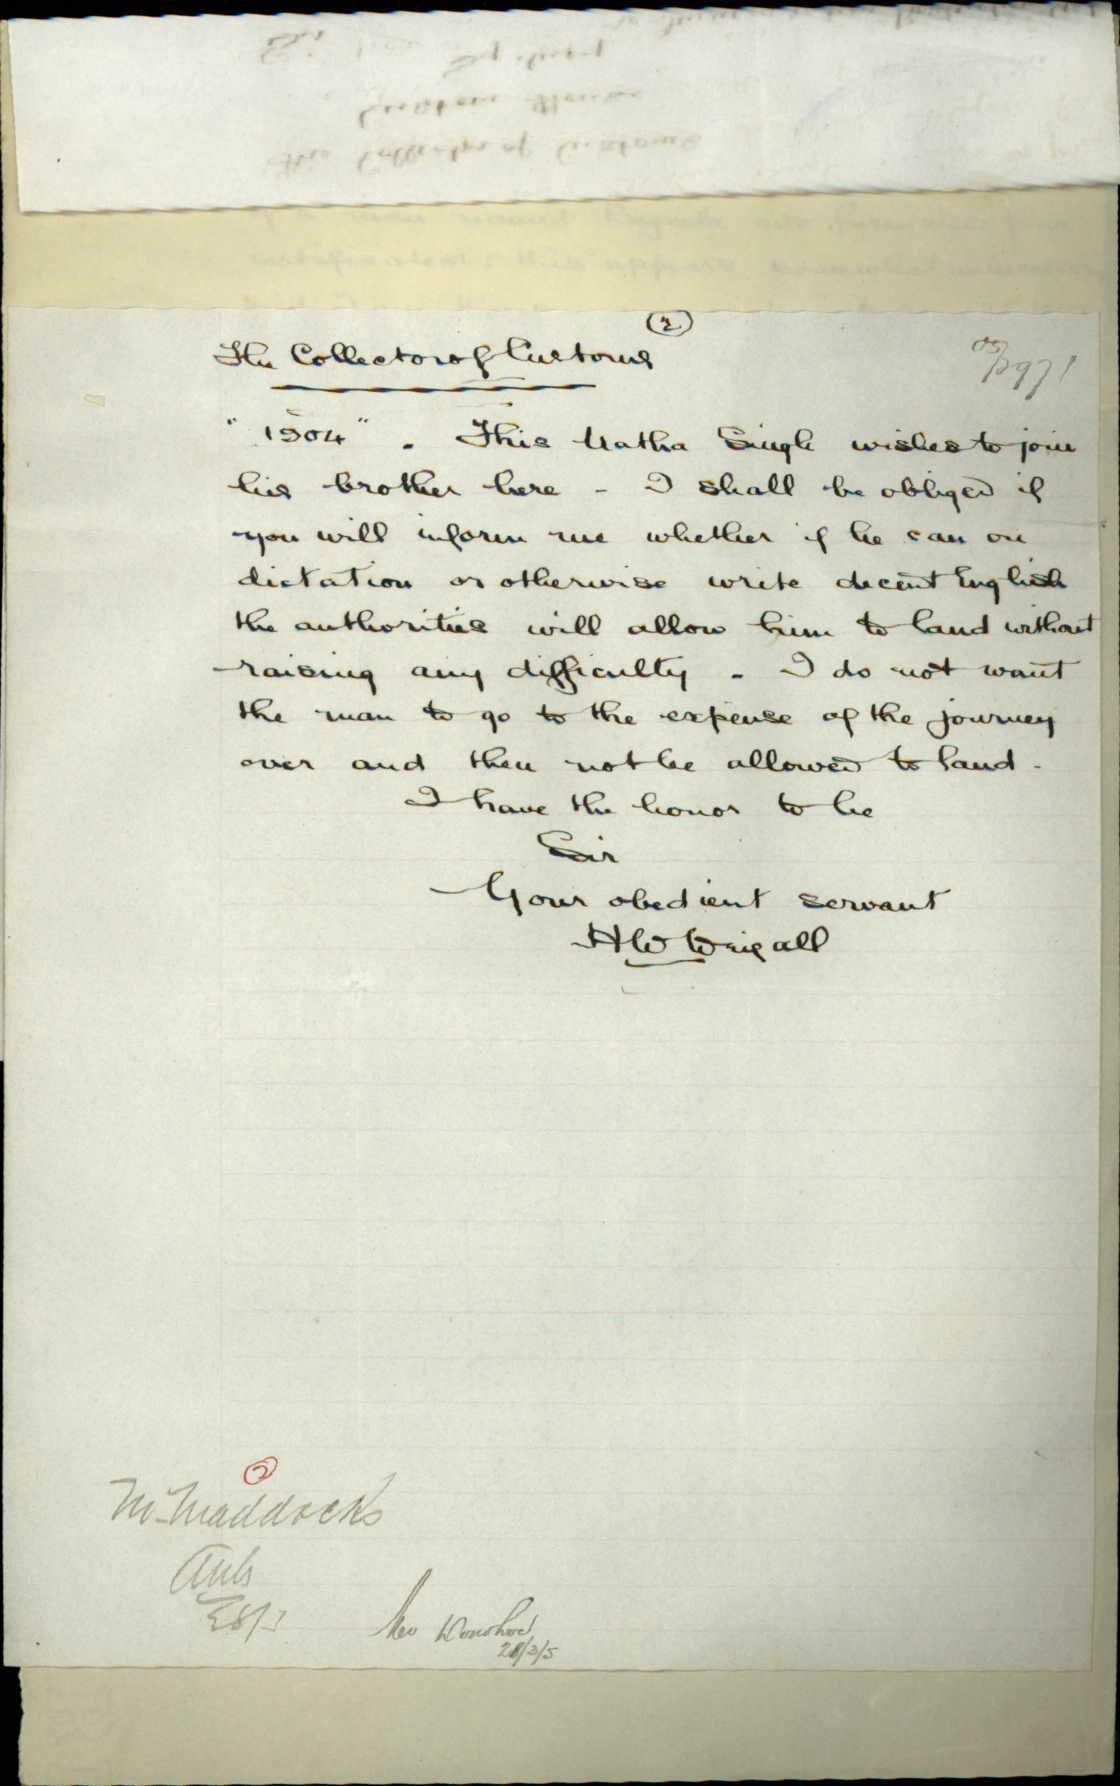 (2)
The Collector of Customs
05/1971
"1904". This Natha Singh wishes to join
his brother here - I shall be obliged if
you will inform me whether if he can on
dictation or otherwise write decent English
the authorities will allow him to land without
raising any difficulty. I do not want
the man to go to the expense of the journey
over and then not be allowed to land.
I have the honor to be
Sir
Your obedient servant
H W Wrigall
(2)
Mr Maddocks
28/3/5